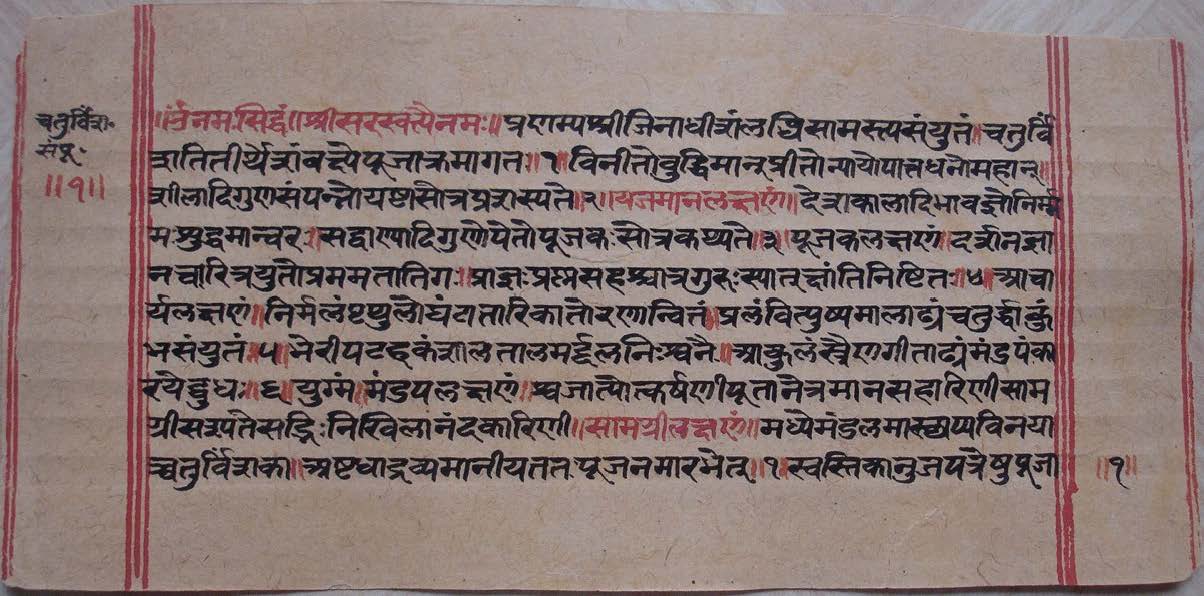 चतुर्विंश॰
सं॰पू॰
॥१॥
॥ॐनमःसिद्धं॥श्रीसरस्वत्यैनमः॥प्रणम्यश्रीजिनाधीशंलब्धिसामस्त्यसंयुतं॥चतुर्विं
शतितीर्थेशंवक्ष्येपूजाक्रमागतं॥१॥विनीतोबुद्धिमान्प्रीतोन्यायोपात्तधनोमहान्॥
शीलादिगुणसंपन्नोयष्टासोत्रप्रशस्यते॥२॥यजमानलक्षणं॥देशकालादिभावज्ञोनिर्म्म
मःशुद्धमान्वरः॥सद्वाण्यादिगुणोपेतोपूजकःसोत्रकथ्यते॥३॥पूजकलक्षणं॥दर्शनज्ञा
नचारित्रयुतोप्रममतातिगः॥प्राज्ञःप्रश्नसहश्चात्रगुरुःस्यात्क्षांतिनिष्टितः॥४॥आचा
र्यलक्षणं॥निर्मलंपृथुलोघंटातारिकातोरणान्वितं॥प्रलंवित्पुष्पमालाढ्यंचतुर्द्धाकुं
भसंयुतं॥५॥भेरीपटहकंशालतालमर्द्दलनिःश्वनैः॥आकुलंस्त्रैणगीताढ्यंमंडपंका
रयेद्बुधः॥६॥युग्मं॥मंडपलक्षणं॥स्वजात्योत्कर्षणीपूतानेत्रमानसहारिणीसाम
ग्रीसस्यतेसद्भिःनिखिलानंदकारिणी॥सामग्रीलक्षणं॥मध्येमंडलमास्थाप्यविनया
च्चतुर्विंशका॥अष्टधाद्रव्यमानीयततःपूजनमारभेत्॥१॥स्वस्तिकानुजपत्रेषुपूजा
॥१॥